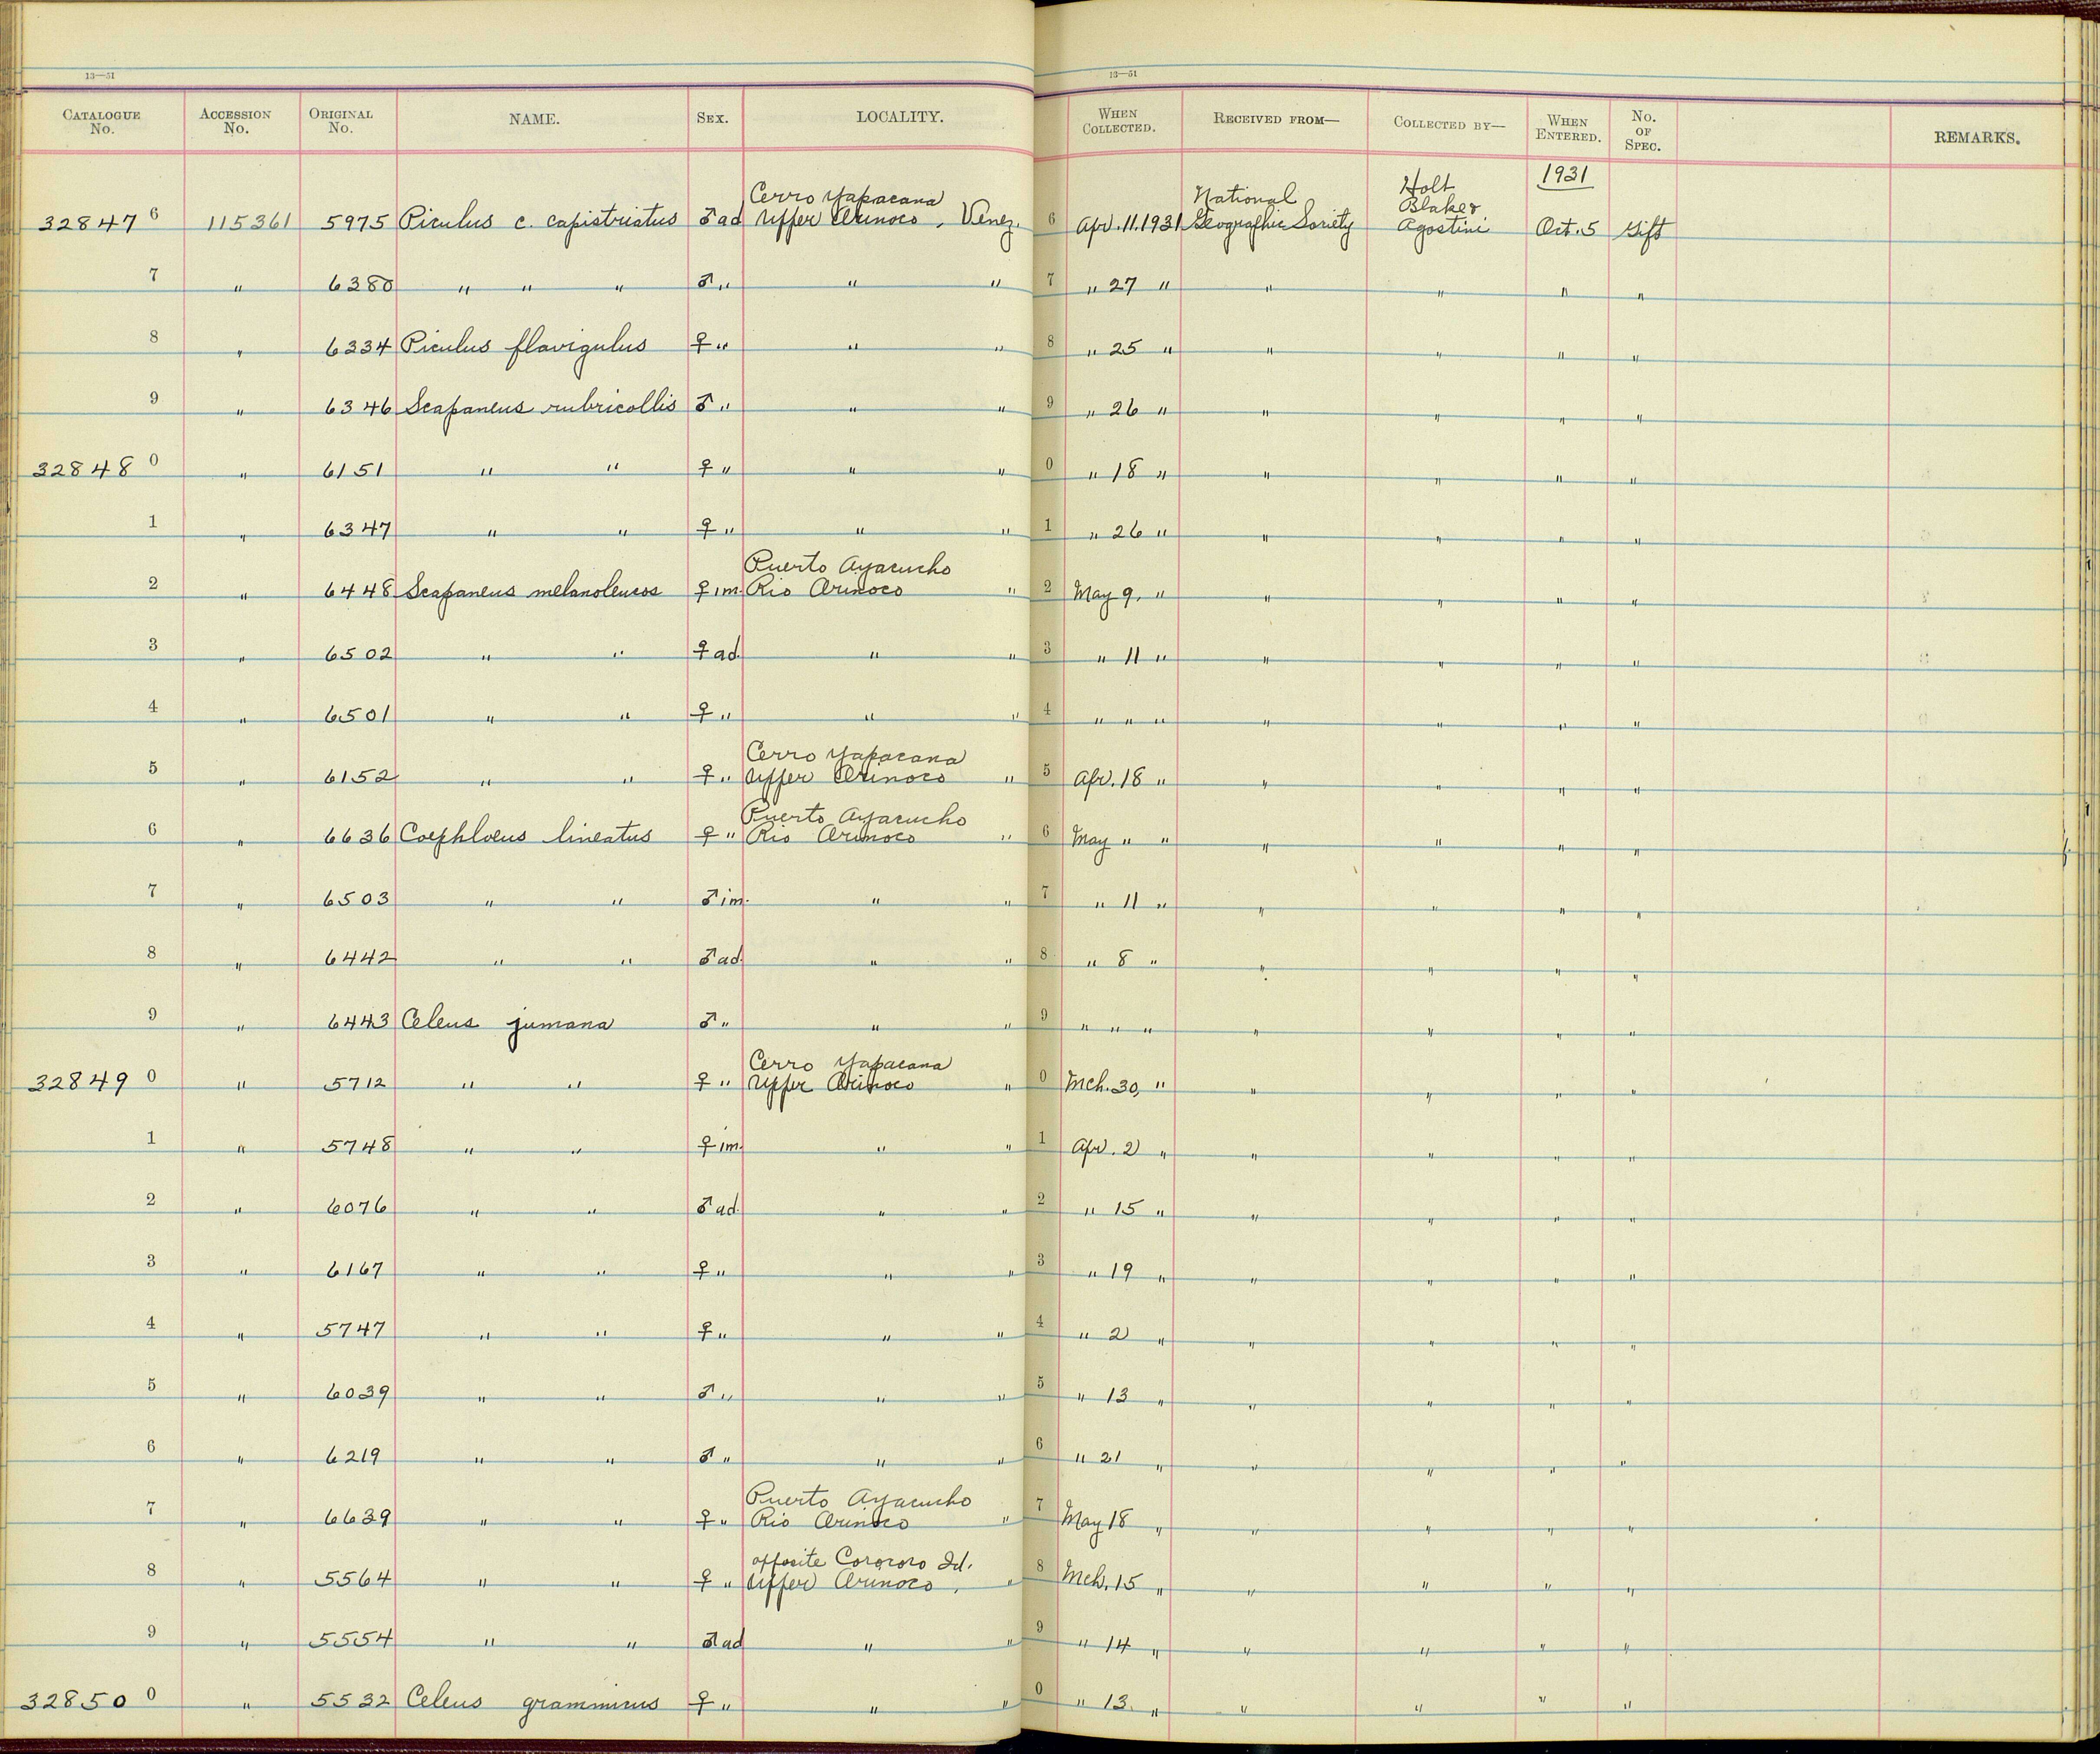 13—51 13—51
CATALOGUE No. ACCESSION No. ORIGINAL No. NAME. SEX. LOCALITY. WHEN COLLECTED. RECEIVED FROM— COLLECTED BY— WHEN ENTERED. No. OF SPEC. REMARKS.
1931
Cerro Yapacana National Holt Blake &
32847 6 115361 5975 Piculus c. capistriatus ♂ ad Upper Orinoco, Venez. 6 Apr. 11. 1931 Geographic Society Agostini Oct. 5 Gift
7 " 6380 " " " ♂ " " " 7 " 27 " " " " "
8 " 6334 Piculus flavigulus ♀ " " " 8 " 25 " " " " "
9 " 6346 Scapaneus rubricollis ♂ " " " 9 " 26 " " " " "
32848 0 " 6151 " " ♀ " " " 0 " 18 " " " " "
1 " 6347 " " ♀ " " " 1 " 26 " " " " "
Puerto Ayacucho
2 " 6448 Scapaneus melanoleucos ♀ im. Rio Orinoco " 2 May 9, " " " " "
3 " 6502 " " ♀ ad. " " 3 " 11 " " " " "
4 " 6501 " " ♀ " " " 4 " " " " " " "
Cerro Yapacana
5 " 6152 " " ♀ " Upper Orinoco " 5 Apr. 18 " " " " "
Puerto Ayacucho
6 " 6636 Coephloeus lineatus ♀ " Rio Orinoco " 6 May " " " " " "
7 " 6503 " " ♂ im. " " 7 " 11 " " " " "
8 " 6442 " " ♂ ad. " " 8 " 8 " " " " "
9 " 6443 Celeus jumana ♂ " " " 9 " " " " " " "
Cerro Yapacana
32849 0 " 5712 " " ♀ " Upper Orinoco " 0 Mch. 30, " " " " "
1 " 5748 " " ♀ im. " " 1 Apr. 2 " " " " "
2 " 6076 " " ♂ ad. " " 2 " 15 " " " " "
3 " 6167 " " ♀ " " " 3 " 19 " " " " "
4 " 5747 " " ♀ " " " 4 " 2 " " " " "
5 " 6039 " " ♂ " " " 5 " 13 " " " " "
6 " 6219 " " ♂ " " " 6 " 21 " " " " "
Puerto Ayacucho
7 " 6639 " " ♀ " Rio Orinoco " 7 May 18 " " " " "
opposite Corocoro Id.
8 " 5564 " " ♀ " Upper Orinoco, " 8 Mch. 15 " " " " "
9 " 5554 " " ♂ ad " " 9 " 14 " " " " "
32850 0 " 5532 Celeus grammicus ♀ " " " 0 " 13. " " " " "